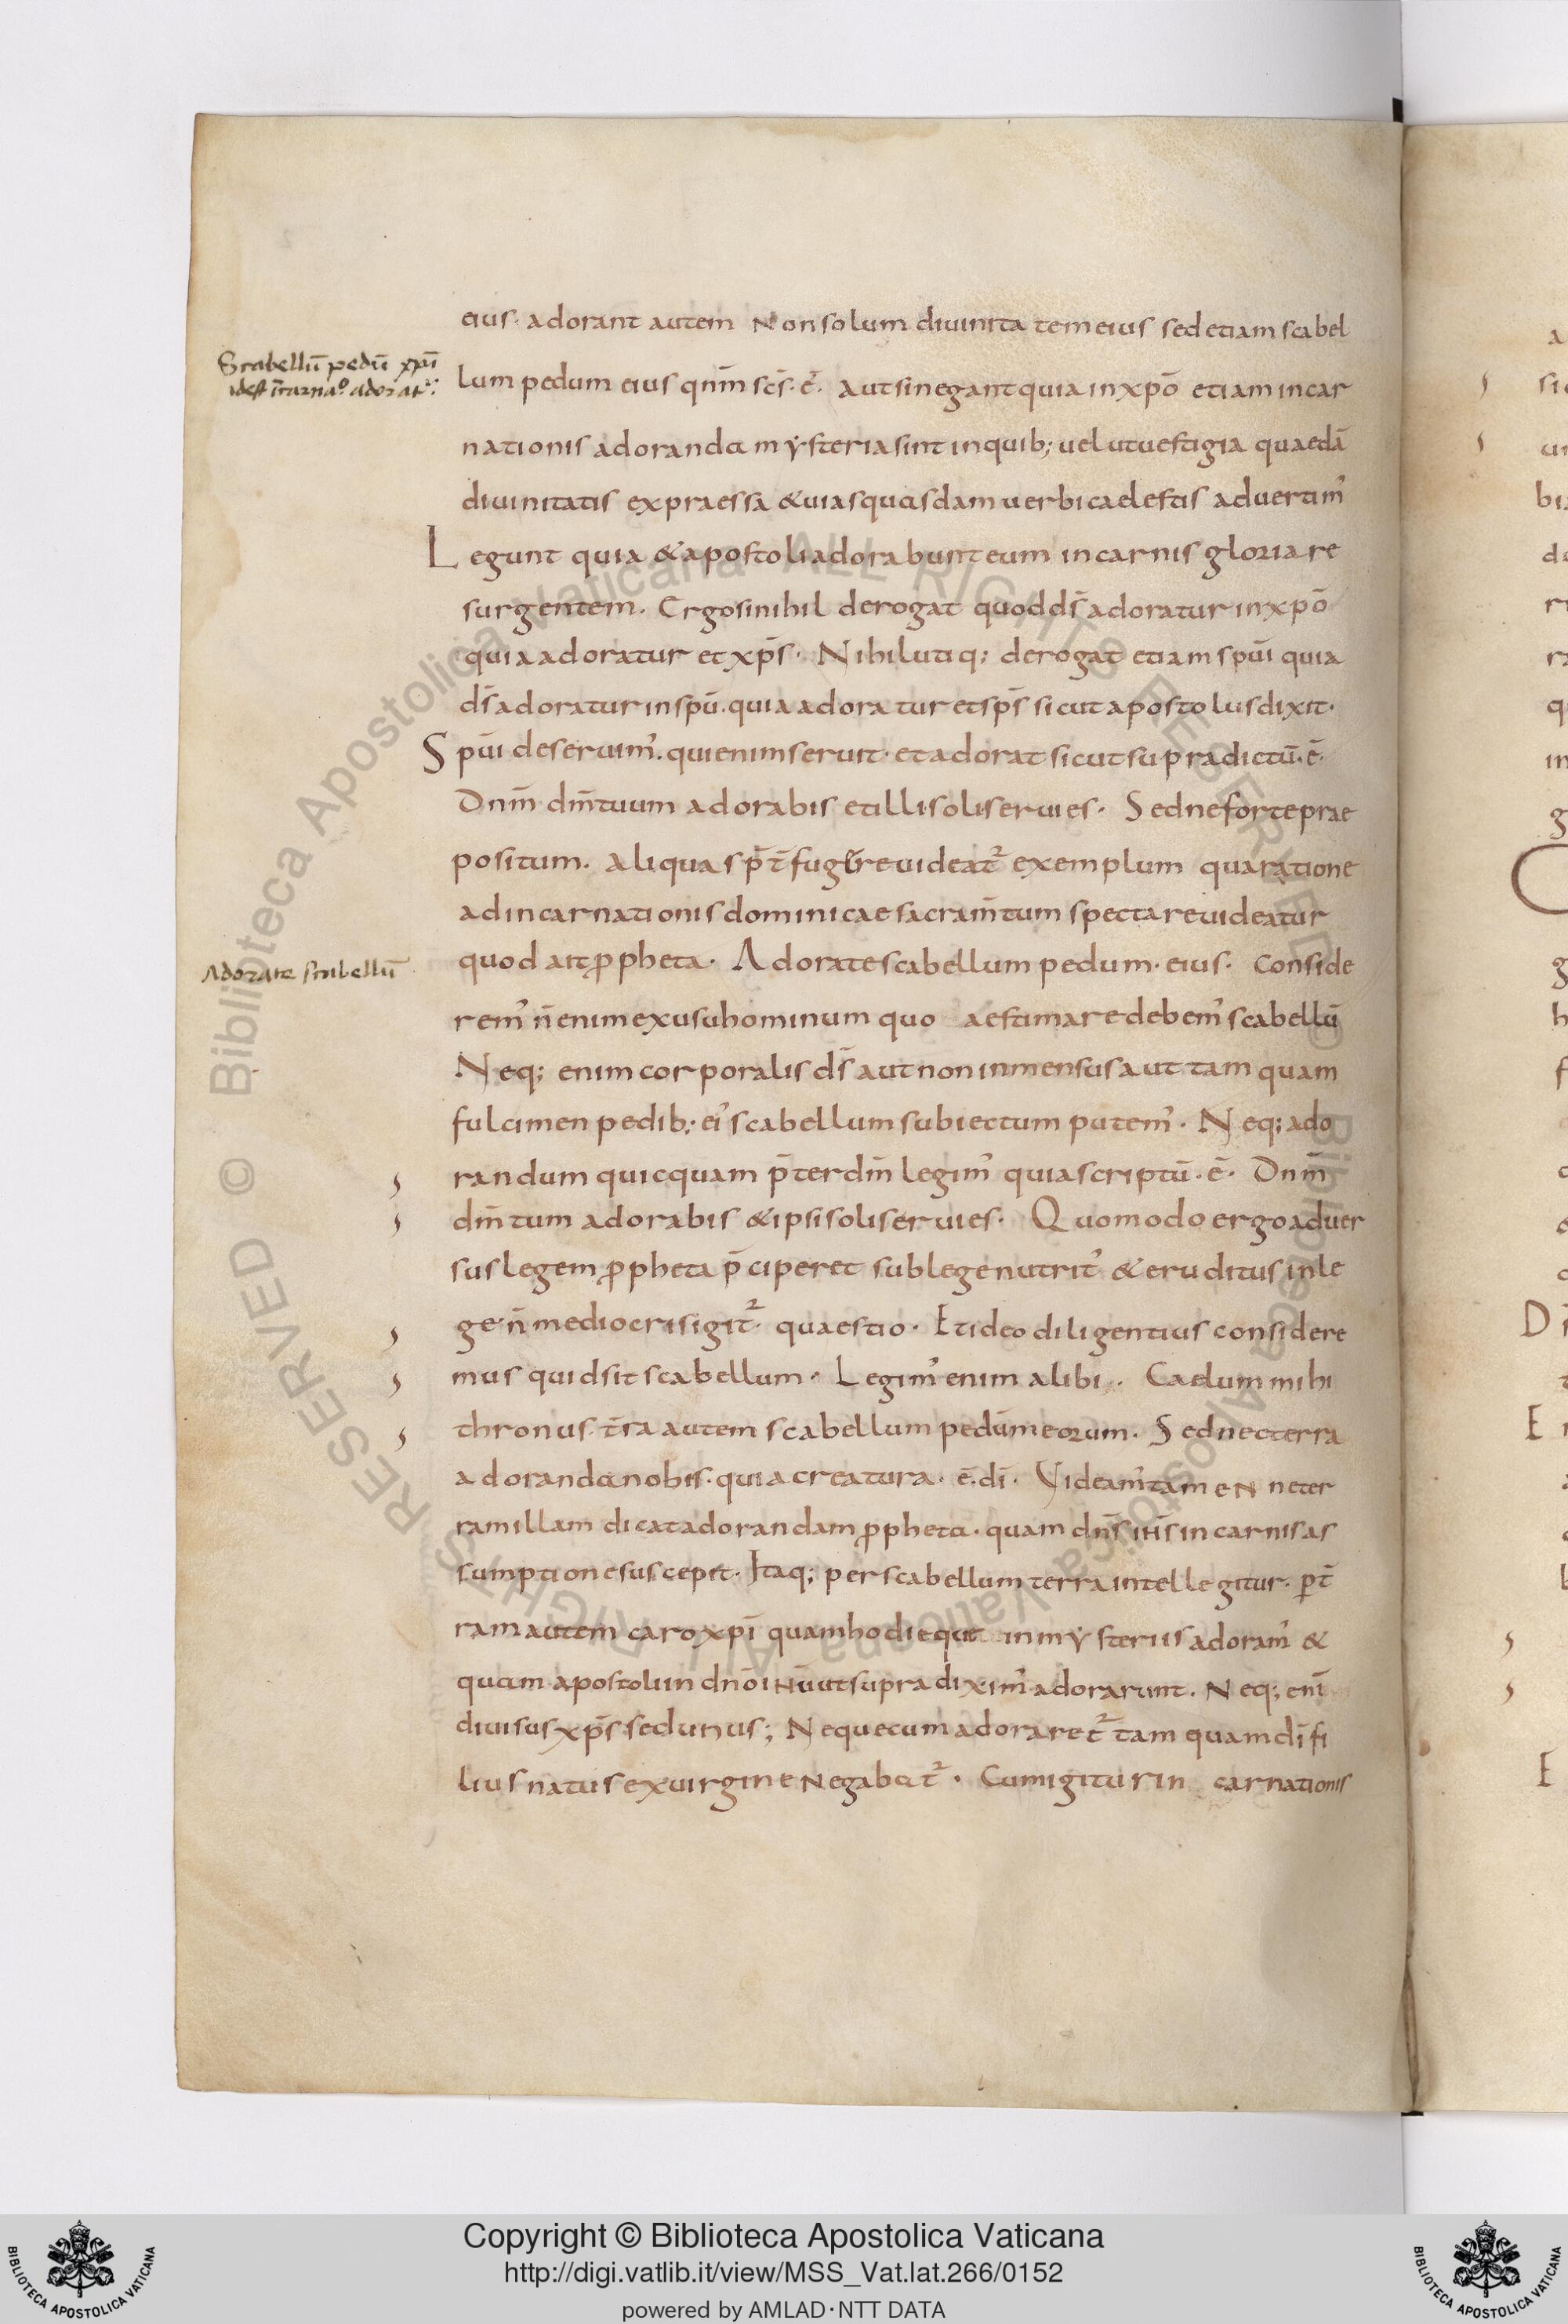 eius· adorant autem Non solum diuinitatem eius sed etiam scabel
Scabellū pedū xp̄i
idest īcarnaᵒ adorat᷑:
lum pedum eius qm̄ sc̄s· ē· aut si negant quia in xp̄o etiam incar
nationis adoranda mẏsteria sint in quib; uelut uestigia quaedā
diuinitatis expraessa & uias quasdam uerbi caelestis aduertim᾽
Legunt quia & apostoli adorabunt eum in carnis gloria re
surgentem. Ergo si nihil derogat quod d̄s adoratur in xp̄o
quia adoratur et xp̄s· Nihil utiq; derogat etiam sp̄ui quia
d̄s adoratur in sp̄u. quia adoratur et sp̄s sicut apostolus dixit·
Sp̄ui deseruim᾽. qui enim seruit· et adorat sicut supra dictū·ē·
Dn̄m dm̄ tuum adorabis et illi soli seruies· Sed ne forte prae
positum. aliqua sp̄t fugere uideat᷑ exemplum qua ratione
ad incarnationis dominicae sacram̄tum spectare uideatur
Adorate scabellū
quod ait p̄pheta· Adorate scabellum pedum· eius· conside
rem᾽ n̄ enim ex usu hominum quo aestimare debem᾽ scabellū
Neq; enim corporalis d̄s aut non inmensus aut tam quam
fulcimen pedib; ei᾽ scabellum subiectum putem᾽· Neq; ado
randum quicquam p̄ter dm̄ legim᾽ quia scriptū·ē· Dn̄m
dm̄ tum adorabis & ipsi soli seruies· Quomodo ergo aduer
sus legem p̄pheta p̄ciperet sub lege nutrit᾽ & eruditus in le
ge· n̄ mediocris igit᷑· quaestio· Et ideo diligentius considere
mus quid sit scabellum· Legim᾽ enim alibi· Caelum mihi
thronus· t̄ra autem scabellum pedum meorum· Sed nec terra
adoranda nobis· quia creatura· ē· dī· Videam᾽ tamen ne ter
ram illam dicat adorandam p̄pheta· quam dn̄s ih̄s in carnis as
sumptione suscepit· Itaq; per scabellum terra intellegitur· p̄ t̄
ram autem caro xp̄i quam hodieque in mẏsteriis adoram᾽ &
quam apostoli in dn̄o ih̄u ut supra dixim᾽ adorarunt. Neq; enī
diuisus xp̄s sed unus; Neque cum adoraret᷑ tam quam dī fi
lius natus ex uirgine negabat᷑· Cum igitur incarnationis
Copyright © Biblioteca Apostolica Vaticana
http://digi.vatlib.it/view/MSS_Vat.lat.266/0152
powered by AMLAD·NTT DATA